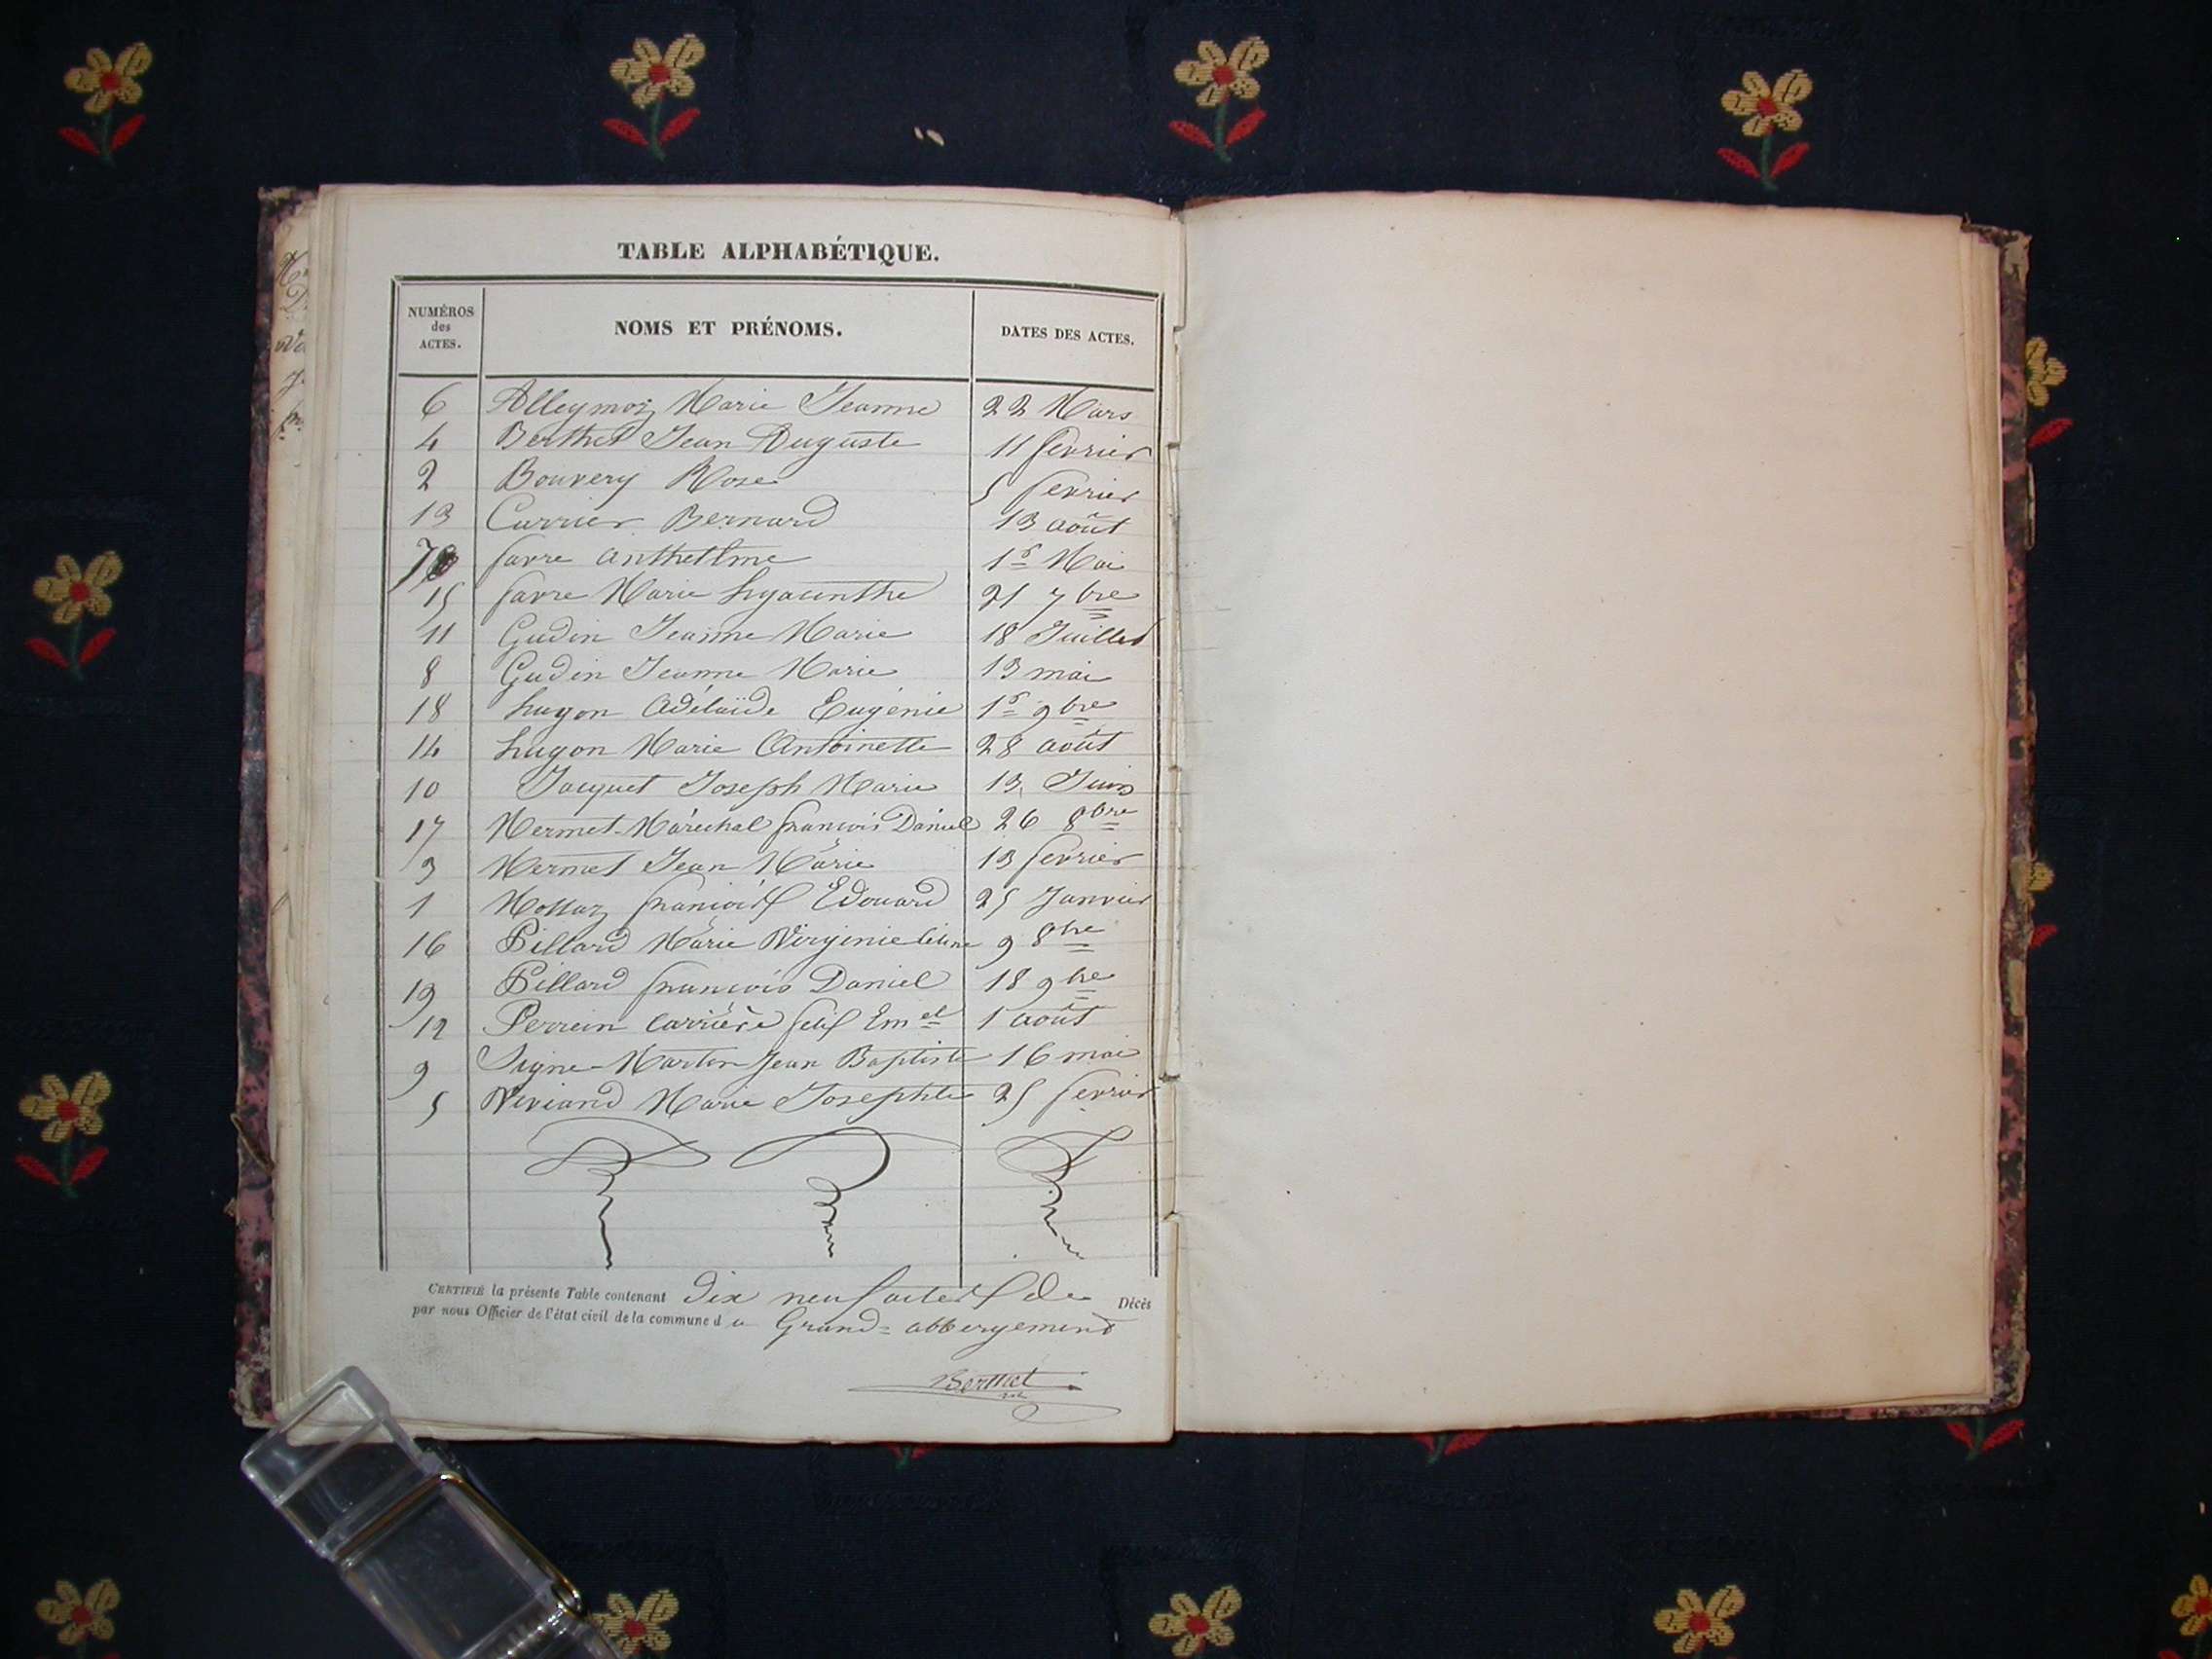 TABLE ALPHABÉTIQUE.
NUMÉROS des ACTES. NOMS ET PRÉNOMS. DATES DES ACTES.
6 Alleymoz Marie Jeanne 22 Mars
4 Berthet Jean Auguste 11 fevrier
2 Bouvery Rose 5 fevrier
13 Carrier Bernard 13 août
7 favre anthelme 1er Mai
15 favre Marie hyacinthe 21 7bre
11 Gudin Jeanne Marie 18 Juillet
8 Gudin Jeanne Marie 13 mai
18 hugon Adélaïde Eugénie 1er 9bre
14 hugon Marie Antoinette 28 août
10 Jacquet Joseph Marie 13 Juin
17 Mermet-Maréchal francois Daniel 26 8bre
3 Mermet Jean Marie 13 fevrier
1 françois Edouard 25 Janvier
16 Billard Marie Virginie Celine 9 8bre
19 Billard francois Daniel 18 9bre
12 Perrein Carrière felix Emel 1 août
9 Signe-Marton Jean Baptiste 16 mai
5 Viviand Marie Josephte 25 fevrier
CERTIFIÉ la présente Table contenant dix neuf actes de Décès
par nous Officier de l'état civil de la commune du Grand-abbergement
Berthet